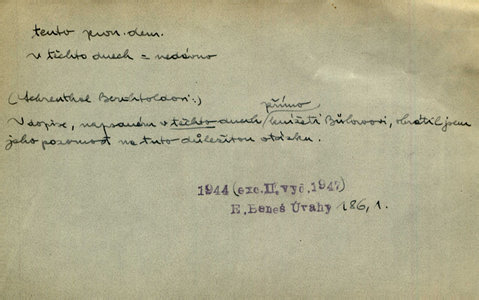 tento pron. dem.
v těchto dnech = nedávno
(Aehrenthal Berchtoldovi:)
přímo
V dopise, napsaném v těchto dnech knížeti Bülowovi, obrátil jsem
jeho pozornost na tuto důležitou otázku.
1944 (exc.II.vyd.1947)
E.Beneš Úvahy 186,1.